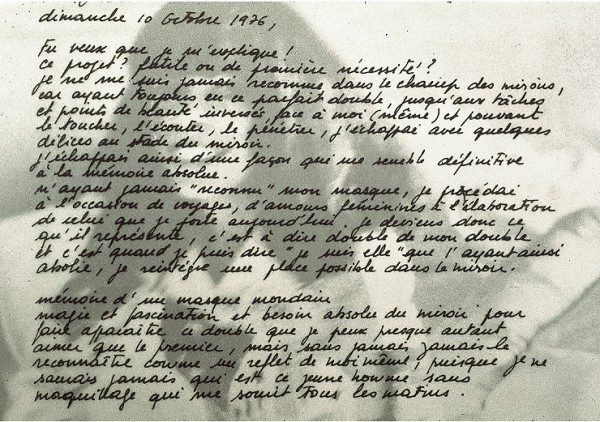 dimanche 10 octobre 1976,
Tu veux que je m'explique !
ce projet ? futile ou de première nécessité ?
je ne me suis jamais reconnu dans le champ des miroirs,
car ayant toujours eu ce parfait double, jusqu'aux tâches
et points de beauté inversés, face à moi (même) et pouvant
le toucher, l'écouter, le pénétrer, j'échappai avec quelques
délices au stade du miroir.
j'échappais ainsi d'une façon qui me semble définitive
à la mémoire absolue.
n'ayant jamais "reconnu" mon masque, je procédai
à l'occasion de voyages, d'amours féminines à l'élaboration
de celui que je porte aujourd'hui je deviens donc ce
qu'il représente, c'est à dire double de mon double
et c'est quand je puis dire "je suis elle" que l'ayant ainsi
absolie, je réintègre une place possible dans le miroir.
mémoire d'un masque mondain
magie et fascination et besoin absolu du miroir pour
faire apparaître ce double que je peux presque autant
aimer que le premier, mais sans jamais jamais le
reconnaître comme un reflet de moi même, puisque je ne
saurais jamais qui est ce jeune homme sans
maquillage qui me sourit tous les matins.